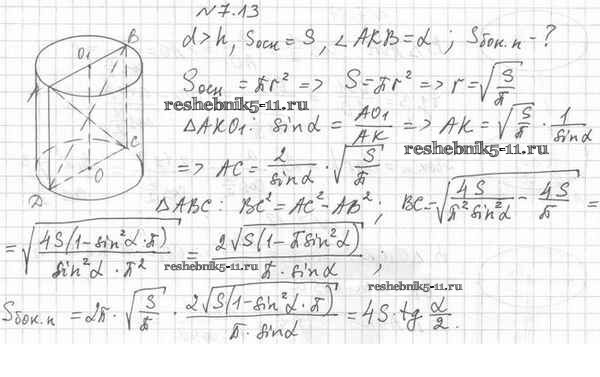 №7.13
d>h, Sосн = S, ∠AKB = α ; Sбок.п - ?
Sосн = πr² => S = πr² => r = √(S/π)
reshebnik5-11.ru
ΔAKO₁: sinα = AO₁/AK => AK = √(S/π) · 1/sinα
reshebnik5-11.ru
=> AC = 2/sinα · √(S/π)
ΔABC: BC² = AC² - AB² ; BC = √(4S/(π² sin²α) - 4S/π) =
= √(4S(1-sin²α·π)/(sin²α·π²)) = 2√(S(1-πsin²α))/(π·sinα) ;
reshebnik5-11.ru
reshebnik5-11.ru
Sбок.п = 2π · √(S/π) · 2√(S(1-sin²α·π))/(π·sinα) = 4S·tg α/2.
B
O₁
A
K
C
O
D